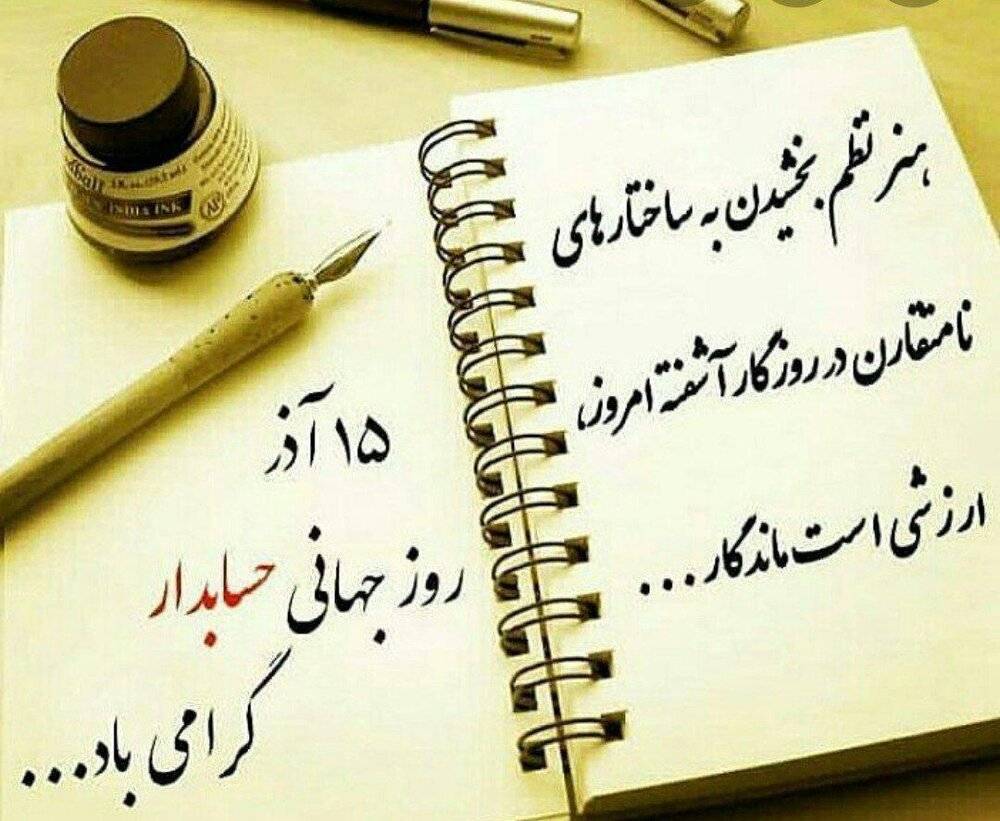 هنر نظم بخشیدن به ساختارهای
نامتقارن در روزگار آشفته امروز،
ارزشی است ماندگار...
۱۵ آذر
روز جهانی حسابدار
گرامی باد...
INDIA INK